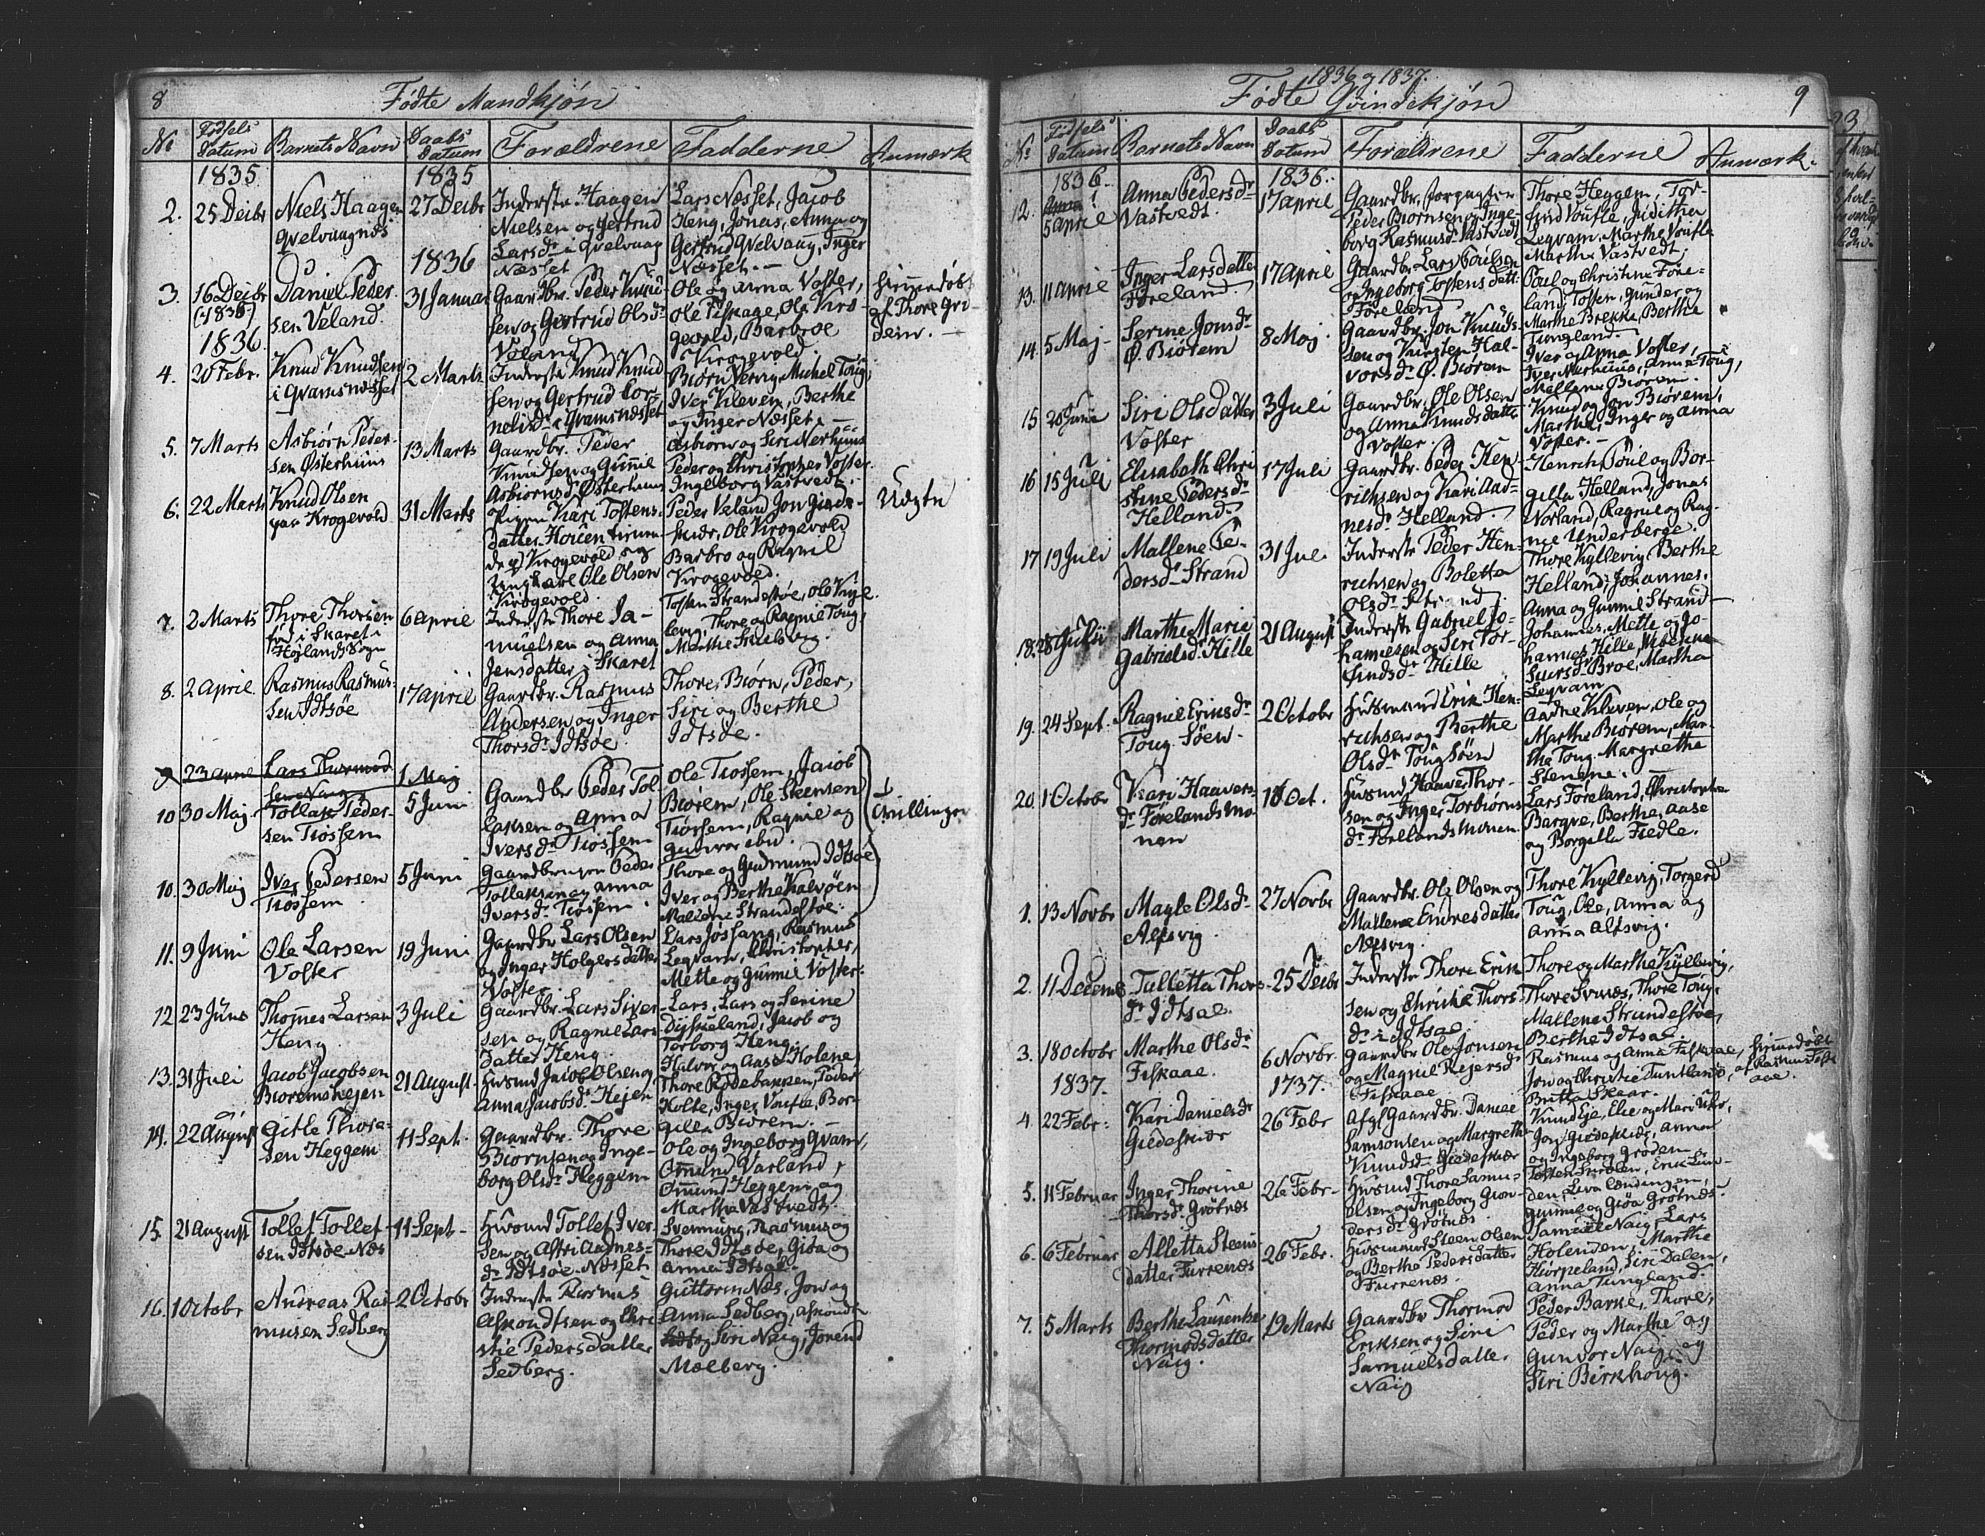 8
Fødte Mandkjøn
No
Fødsels Datum
Barnets Navn
Daabs Datum
Forældrene
Fadderne
Anmærk
1835
1835
2.
25 Deibr
Niels Haagen
Qvelvaagnæs
27 Deibr
Inderste Haagen
Nielsen og Gertrud
Larsdr i Qvelvaag
Næsset
Lars Næsset, Jacob
Heng, Jonas, Anna og
Gertrud Qvelvaag, Inger
Næsset.
1836
3.
16 Deibr
(1835)
Daniel Peder
sen Veland.
31 Januar
Gaardbr. Peder Knud
sen og Gertrud Olsdr
Veland
Ole og Anna Voster,
Ole Fiskaae, Ole Kro
gevold, Barbroe
Krogevold
hjemmedøbt
af Thore Gri
deim.
1836.
4.
20 Febr.
Knud Knudsen
i Qvamsnæsset
2 Marts
Inderste Knud Knud
sen og Gertrud Cor
nelisdr i Qvamsnæsset
Biørn Vervig, Michel Toug,
Iver Kleven, Berthe
og Inger Næsset.
5.
7 Marts
Asbiørn Peder
sen Østerhuus
13 Marts
Gaardbr. Peder
Knudsen og Gunnil
Asbiornsdr Østerhuus
Asbiørn og Siri Nerhuus
Peder og Christopher Voster
Ingeborg Vastvedt.
6.
22 Marts
Knud Olsen
paa Krogevold
31 Marts
Pigen Kari Tostens
datter Houen
Krogevold og
Ungkarl Ole Olsen
Krogevold.
Peder Veland, Jon Giede-
skier, Ole Krogevold
Barbro og Ragnil
Krogevold.
Uægte
7.
2 Marts
Thore Thorsen
fød i Skaret i
Højlands Sogn
6 April
Inderste Thore Sa-
muelsen og Anna
Jensdatter i Skaret
Tosten Strandestøe, Ole Kyl
levig, Thore og Ragnie Toug,
Marthe
8.
2 April
Rasmus Rasmus-
sen Idtsøe
17 April
Gaardbr. Rasmus
Andersen og Inger
Thorsdr Idtsøe
Thore, Biørn, Peder,
Siri og Berthe
Idtsøe.
9
23 April
Lars Thormod
sen Naig
1 Maj
10
30 Maj
Tollak Peder-
sen Tiossem
5 Juni
Gaardbr Peder Tol
laksen og Anna
Iversdr Tiossem
Ole Tiossem, Jacob
Biørem, Ole Steensen
Tiossem, Ragnie og
Gunvor ibid.
Tvillinger
10.
30 Maj
Iver Pedersen
Tiossem.
5 Juni
Gaardbrugr Peder
Tollaksen og Anna
Iversdr Tiossem.
Thore og Gudmund Idtsøe
Iver og Berthe Kalvøen
Mallene Strandestøe.
11.
9 Juni
Ole Larsen
Voster
19 Juni
Gaardbr Lars Olsen
og Inger Holgersdatter
Voster
Lars Jøssang, Rasmus
Legvam, Christopher,
Mette og Gunnil Voster.
12
23 Juni
Thomes Larsen
Heng
3 Juli
Gaardbr. Lars Siver
sen og Ragnil Lars
datter Heng.
Lars, Lars og Serine
Dyskeland, Jacob og
Torborg Heng.
13.
31 Juli
Jacob Jacobsen
Bioremshejen
21 August
Husmd Jacob Olsen og
Anna Jacobsdr Hejen
Halvor og Aase Holene
Thore Rødebakken, Peder
Holte, Inger Voufle, Bor-
gilla Biørem.
14.
22 August
Gitle Thore-
sen Heggem
11 Sept.
Gaardbr. Thore
Biornsen og Inge-
borg Olsdr Heggem
Ole og Ingeborg Qvam,
Omund Varland,
Omund Heggem og
Martha Vastvedt.
15.
21 August
Tollef Tollef
sen Idtsøe Næs
11 Sept.
Husmd Tollef Iver
sen og Astri Aadnes-
dr Idtsøe Næsset
Svennung, Rasmus og
Thore Idtsøe, Gida og
Anna Idtsøe
16.
1 Octobr
Andreas Ras
musen Sedberg
2 Octobr
Inderste Rasmus
Askondtsen og Chri
stie Pedersdatter
Sedberg.
Guttorm Næs, Jon og
Anna Sedberg, Askond
og Siri Naig, Jorend
Mælberg.
1836 og 1837.
Fødte Qvindekjøn
9
No
Fødsels Datum
Barnets Navn
Daabs Datum
Forældrene
Fadderne
Anmærk.
1836.
1836.
12.
5 April
Anna Pedersdr
Vastvedt.
17 April
Gaardbr. Forpagter
Peder Biørnsen og Inge-
borg Rasmusdr Vastvedt
Thore Heggem, Tor-
find Voufle, Juditha
Legvam, Marthe Voufle
Martha Vastvedt
13.
11 April
Inger Larsdatter
Føreland.
17 April
Gaardbr Lars Poulsen
og Ingeborg Tostensdatt
Føreland
Paul og Christine Føre-
land, Tosten, Gunder og
Marthe Brekke, Berthe
Tungland.
14.
5 Maj
Serine Jonsdr
Ø. Biørem
8 Maj
Gaardbr. Jon Knuds-
sen og Kirsten Hal-
vorsdr Ø. Biørem
Iver og Anna Voster,
Iver Marhuus, Anna Toug,
Mallene Biørem.
15
26 Juni
Siri Olsdatter
Voster
3 Juli
Gaardbr. Ole Olsen
og Anna Knudsdatter
Voster.
Knud og Jon Biørem,
Marthe, Inger og Anna
Voster.
16
15 Juli
Elisabeth Chri
stine Pedersdr
Helland.
17 Juli
Gaardbr. Peder Hen
richsen og Kari Aad-
nesdr Helland.
Henrich, Poul og Bor-
gilla Helland, Jonas
Norland, Ragnie og Rag-
nie Underberge.
17
19 Juli
Mallene Pe-
dersdr Strand
31 Juli
Inderste Peder Hen-
richsen og Boletta
Olsdr Strand
Thore Kyllevig, Berthe
Helland, Johannes,
Anna og Gunnil Strand
18.
28 Juli
Marthe Marie
Gabrielsdr Hille
21 August
Inderste Gabriel Jo-
hannesen og Siri Tor-
findsdr Hille
Johannes, Mette og Jo-
hannes Hille,
Broe, Martha
Legvam
19.
24 Sept.
Ragnie Eriksdr
Toug Søen
2 Octobr
Husmand Erik Hen-
richsen og Berthe
Olsdr Toug Søen
Aadne Kleven, Ole og
Marthe Biørem, Mar-
tha Toug, Margrethe
Stenene.
20.
1 Octobr
Kari Haavers-
dr Førelandsmo-
nen
10 Oct.
Husmd Haaver Thor-
sen og Inger Torbiørns
dr Førelandsmonen
Lars Føreland, Christopher
Bargve, Berthe, Aase
og Borgilla Fiedle.
1.
13 Novbr
Magle Olsdr
Alfsvig
27 Novbr
Gaardbr. Ole Olsen og
Mallene Endresdatter
Alfsvig.
Thore Kyllevig, Torgerd
Toug, Ole, Anna og
Anna Alfsvig.
2.
11 Decemb
Tulletta Thors-
dr Idtsøe.
25 Deibr
Inderste Thore Erik
sen og Christie Thors
dr i Idtsøe
Thore og Marthe Kyllevig,
Thore Toug,
Mallene Strandestøe,
Berthe Idtsøe
3.
18 Octobr
Marthe Olsdr
Fiskaae
6 Novbr.
Gaardbr Ole Jonsen
og Magnil Rejersdr
Fiskaae
Rasmus og Anna Fiskaae,
Jon og Christie Tuntland,
Britta Skaar.
hjemmedøbt
af Rasmus Fisk
aae.
1837.
1737.
4.
22 Febr.
Kari Danielsdr
Giedeskiær
26 Febr
Afgl Gaardbr. Daniel
Samsonsen og Margrethe
Knudsdr Giedeskiær
Knud Eje, Elie og Mari
Jon Giedeskiær, Anna
og Ingeborg Grødem
5.
11 Februar
Inger Thorine
Thorsdr Grøtnæs
26 Febr.
Husmd Thore Samu-
elsen og Ingeborg Gun-
dersdr Grøtnæs.
Gunnil og Gida Grøtnæs.
6.
6 Februar
Alletta Steens
datter Furrenæs
26 Febr.
Husmand Steen Olsen
og Berthe Pedersdatter
Furrenæs.
Samuel Naig, Lars
Holenden, Marthe
Kiørpeland, Siri Dalen,
Anna Tungland.
7.
5 Marts
Berthe Laurentse
Thormodsdatter
Naig.
19 Marts
Gaardbr Thormod
Eriksen og Siri
Samuelsdatter
Naig
Peder Barke, Thore,
Peder og Marthe og
Gunvor Naig og
Siri Birkhoug.